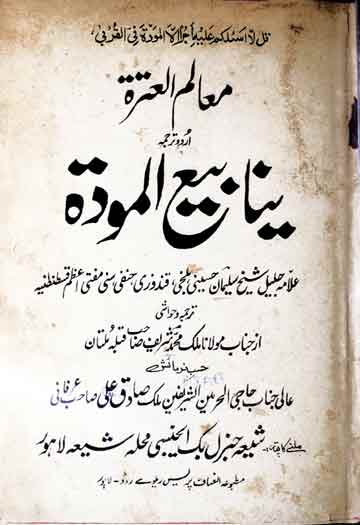 قل لا اسئلکم علیہ اجرا الا المودۃ فی القربیٰ
معالم العترۃ
اردو ترجمہ
ینابیع المودۃ
علامہ جلیل شیخ سلیمان حسینی بلخی قندوزی حنفی سنی مفتی اعظم قسطنطنیہ
ترجمہ و حواشی
از جناب مولانا ملک محمد شریف صاحب قبلہ ملتان
حسب فرمائش
عالی جناب حاجی الحرمین الشریفین ملک صادق علی صاحب عرفانی
ملنے کا پتہ:۔ شیعہ جنرل بک ایجنسی محلہ شیعہ لاہور
مطبوعہ انصاف پریس ریلوے روڈ ۔ لاہور